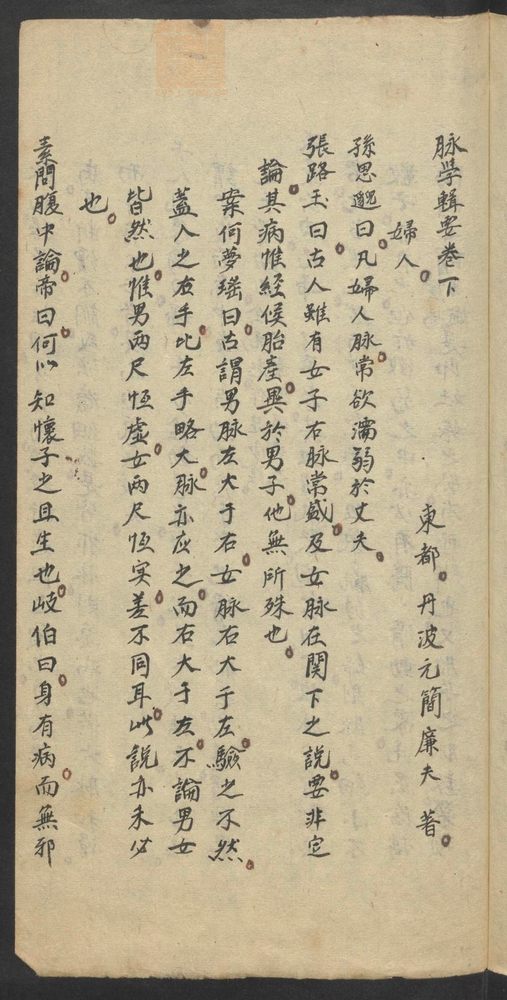 脉學輯要卷下
東都 丹波元簡廉夫 著
婦人
孫思邈曰凡婦人脉常欲濡弱於丈夫
張路玉曰古人雖有女子右脉常盛及女脉在関下之說要非定
論其病惟經候胎產異於男子他無所殊也
案何夢瑶曰古謂男脉左大于右女脉右大于左驗之不然
蓋人之右手比左手略大脉亦应之而右大于左不論男女
皆然也惟男两尺恒虚女两尺恒实差不同耳此說亦未必
也
素問腹中論帝曰何以知懷子之且生也岐伯曰身有病而無邪